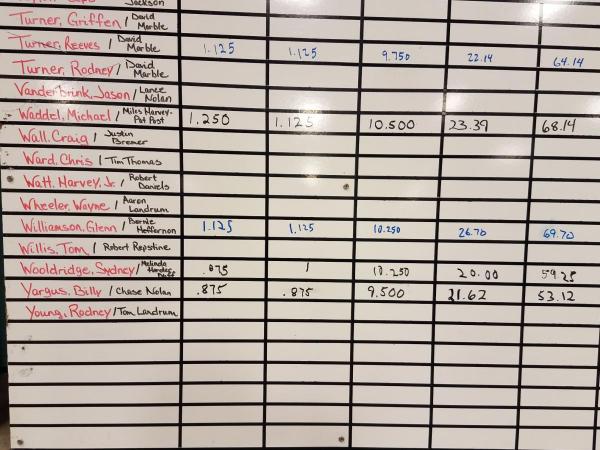 Jackson
Turner, Griffen / David Marble
Turner, Reeves / David Marble 1.125 1.125 9.750 22.14 64.14
Turner, Rodney / David Marble
Vanderbrink, Jason / Lance Nolan
Waddel, Michael / Miles Harvey- Pat Post 1.250 1.125 10.500 23.39 68.14
Wall, Craig / Justin Bremer
Ward, Chris / Tim Thomas
Watt, Harvey, Jr. / Robert Daniels
Wheeler, Wayne / Aaron Landrum
Williamson, Glenn / Bernie Heffernon 1.125 1.125 10.250 26.70 69.70
Willis, Tom / Robert Repstine
Wooldridge, Sydney / Melinda .875 1 10.250 20.00 59.25
Yargus, Billy / Chase Nolan .875 .875 9.500 21.62 53.12
Young, Rodney / Tom Landrum